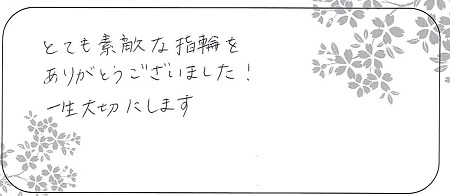 とても素敵な指輪を
ありがとうございました!
一生大切にします